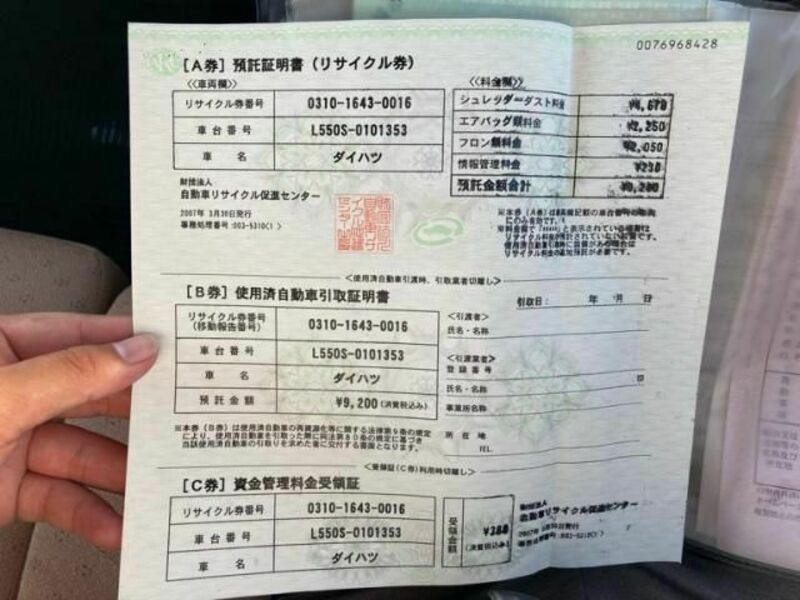 0076968428
[A券] 預託証明書(リサイクル券)
<<車両欄>>
リサイクル券番号 0310-1643-0016
車台番号 L550S-0101353
車名 ダイハツ
<<料金欄>>
シュレッダーダスト料金 ¥4,670
エアバッグ類料金 ¥2,250
フロン類料金 ¥2,050
情報管理料金 ¥230
預託金額合計 ¥9,200
財団法人
自動車リサイクル促進センター
2007年 3月30日発行
<使用済自動車引渡時、引取業者切離し>
[B券] 使用済自動車引取証明書
引取日: 年 月 日
リサイクル券番号
(移動報告番号) 0310-1643-0016
車台番号 L550S-0101353
車名 ダイハツ
預託金額 ¥9,200(消費税込み)
<引渡者>
氏名・名称
<引渡業者>
登録番号
氏名・名称 印
事業所名称
所在地
TEL.
※本券(B券)は使用済自動車の再資源化等に関する法律第9条の規定
により、使用済自動車を引取った際に同法第80条の規定に基づき
当該使用済自動車の引取りを求めた者に交付する書面となります。
<受領証(C券)利用時切離し>
[C券] 資金管理料金受領証
リサイクル券番号 0310-1643-0016
車台番号 L550S-0101353
車名 ダイハツ
受領金額 ¥380
(消費税込み)
財団法人
自動車リサイクル促進センター
2007年 3月30日発行